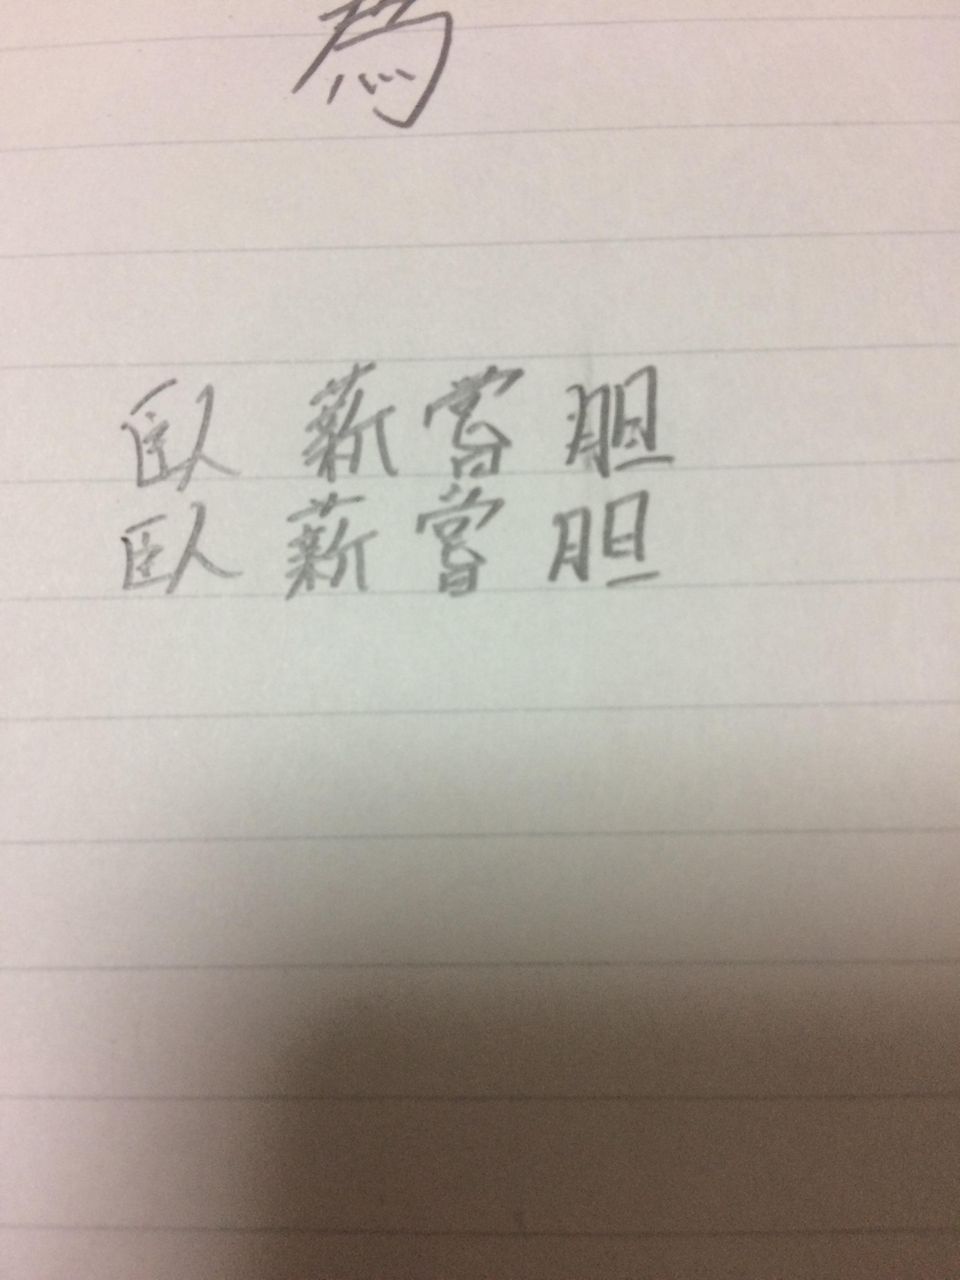 為
臥薪嘗胆
臥薪嘗胆